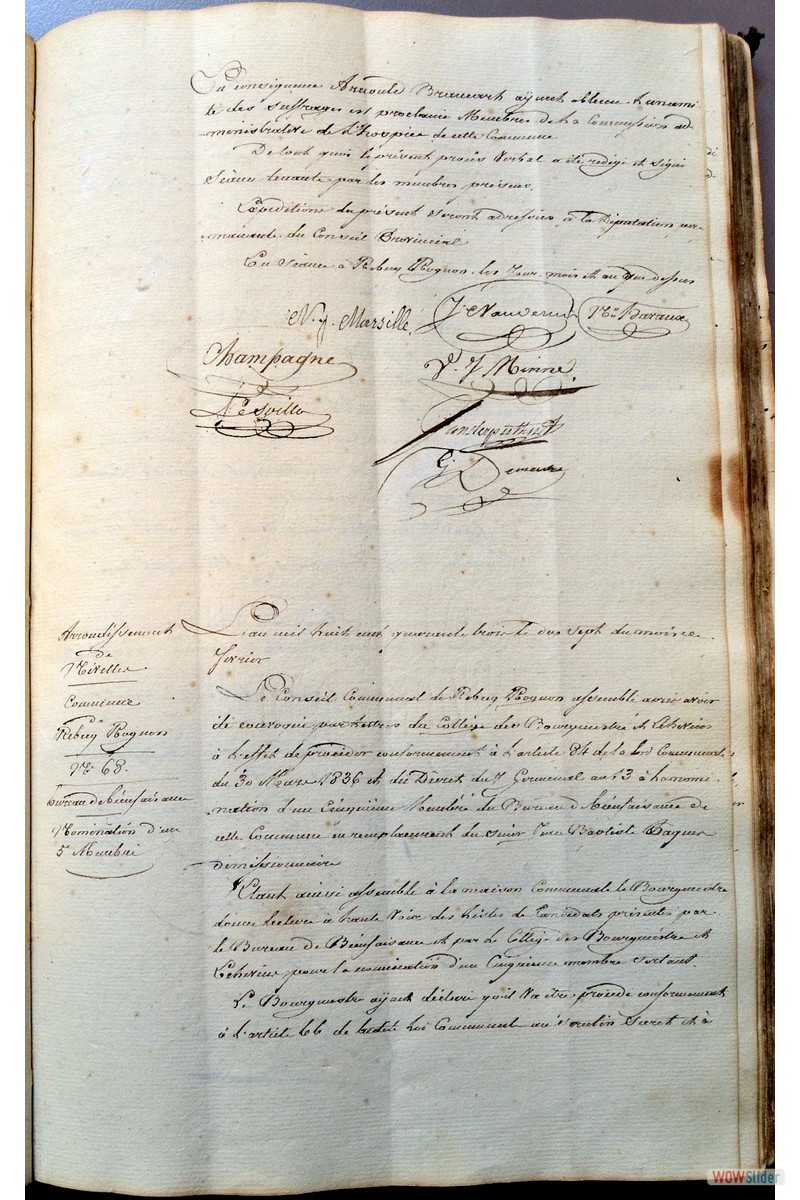 En conséquence Arnould Brancart ayant obtenu l'unanimi
té des suffrages est proclamé Membre de la Commission ad
ministrative de l'hospice de cette Commune
De tout quoi le présent procès Verbal a été rédigé et signé
Séance tenante par les membres présens.
Expéditions du présent seront adressées à la Députation per
manante du Conseil Provincial
En Séance à Rebecq Rognon les Jour, mois et an que dessus
N. J. Marsille
Champagne
V. J. Minne
Demeure
Arrondissement
de
Nivelles
Commune
de
Rebecq Rognon
No 68.
bureau de bienfaisance
Nomination d'un
5e Membre
L'an mil huit cent quarante trois le dix sept du mois de
fevrier
Le Conseil Communal de Rebecq Rognon assemblé après avoir
été convoqué par lettres du Collège des Bourgmestre et Echevins
à l'effet de procéder conformement à l'article 84 de la loi Communale
du 30 Mars 1836 et du Décret du 7 Germinal an 13 à la nomi
nation d'un Cinquième Membre du Bureau de bienfaisance de
cette Commune en remplacement du Sieur Jean Baptiste
démissionnaire
Etant ainsi assemblé à la maison Communale le Bourgmestre
donne lecture à haute Voix des listes de Candidats présentés par
le Bureau de Bienfaisance et par le Collège des Bourgmestre et
Echevins pour la nomination d'un Cinquième membre sortant.
Le Bourgmestre ayant déclaré qu'il Va être procédé conformement
à l'article 66 de ladite Loi Communale au scrutin Secret et à
WOWSlider